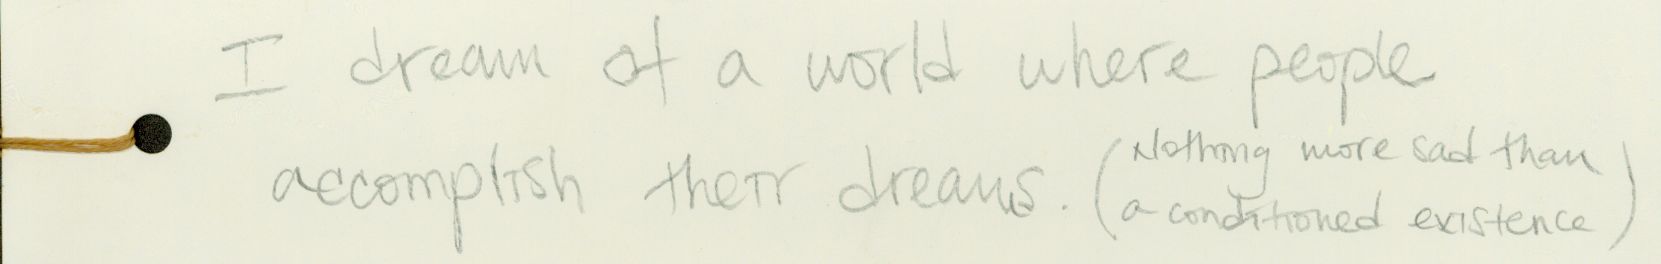 I dream of a world where people
accomplish their dreams. (Nothing more sad than
a conditioned existence)